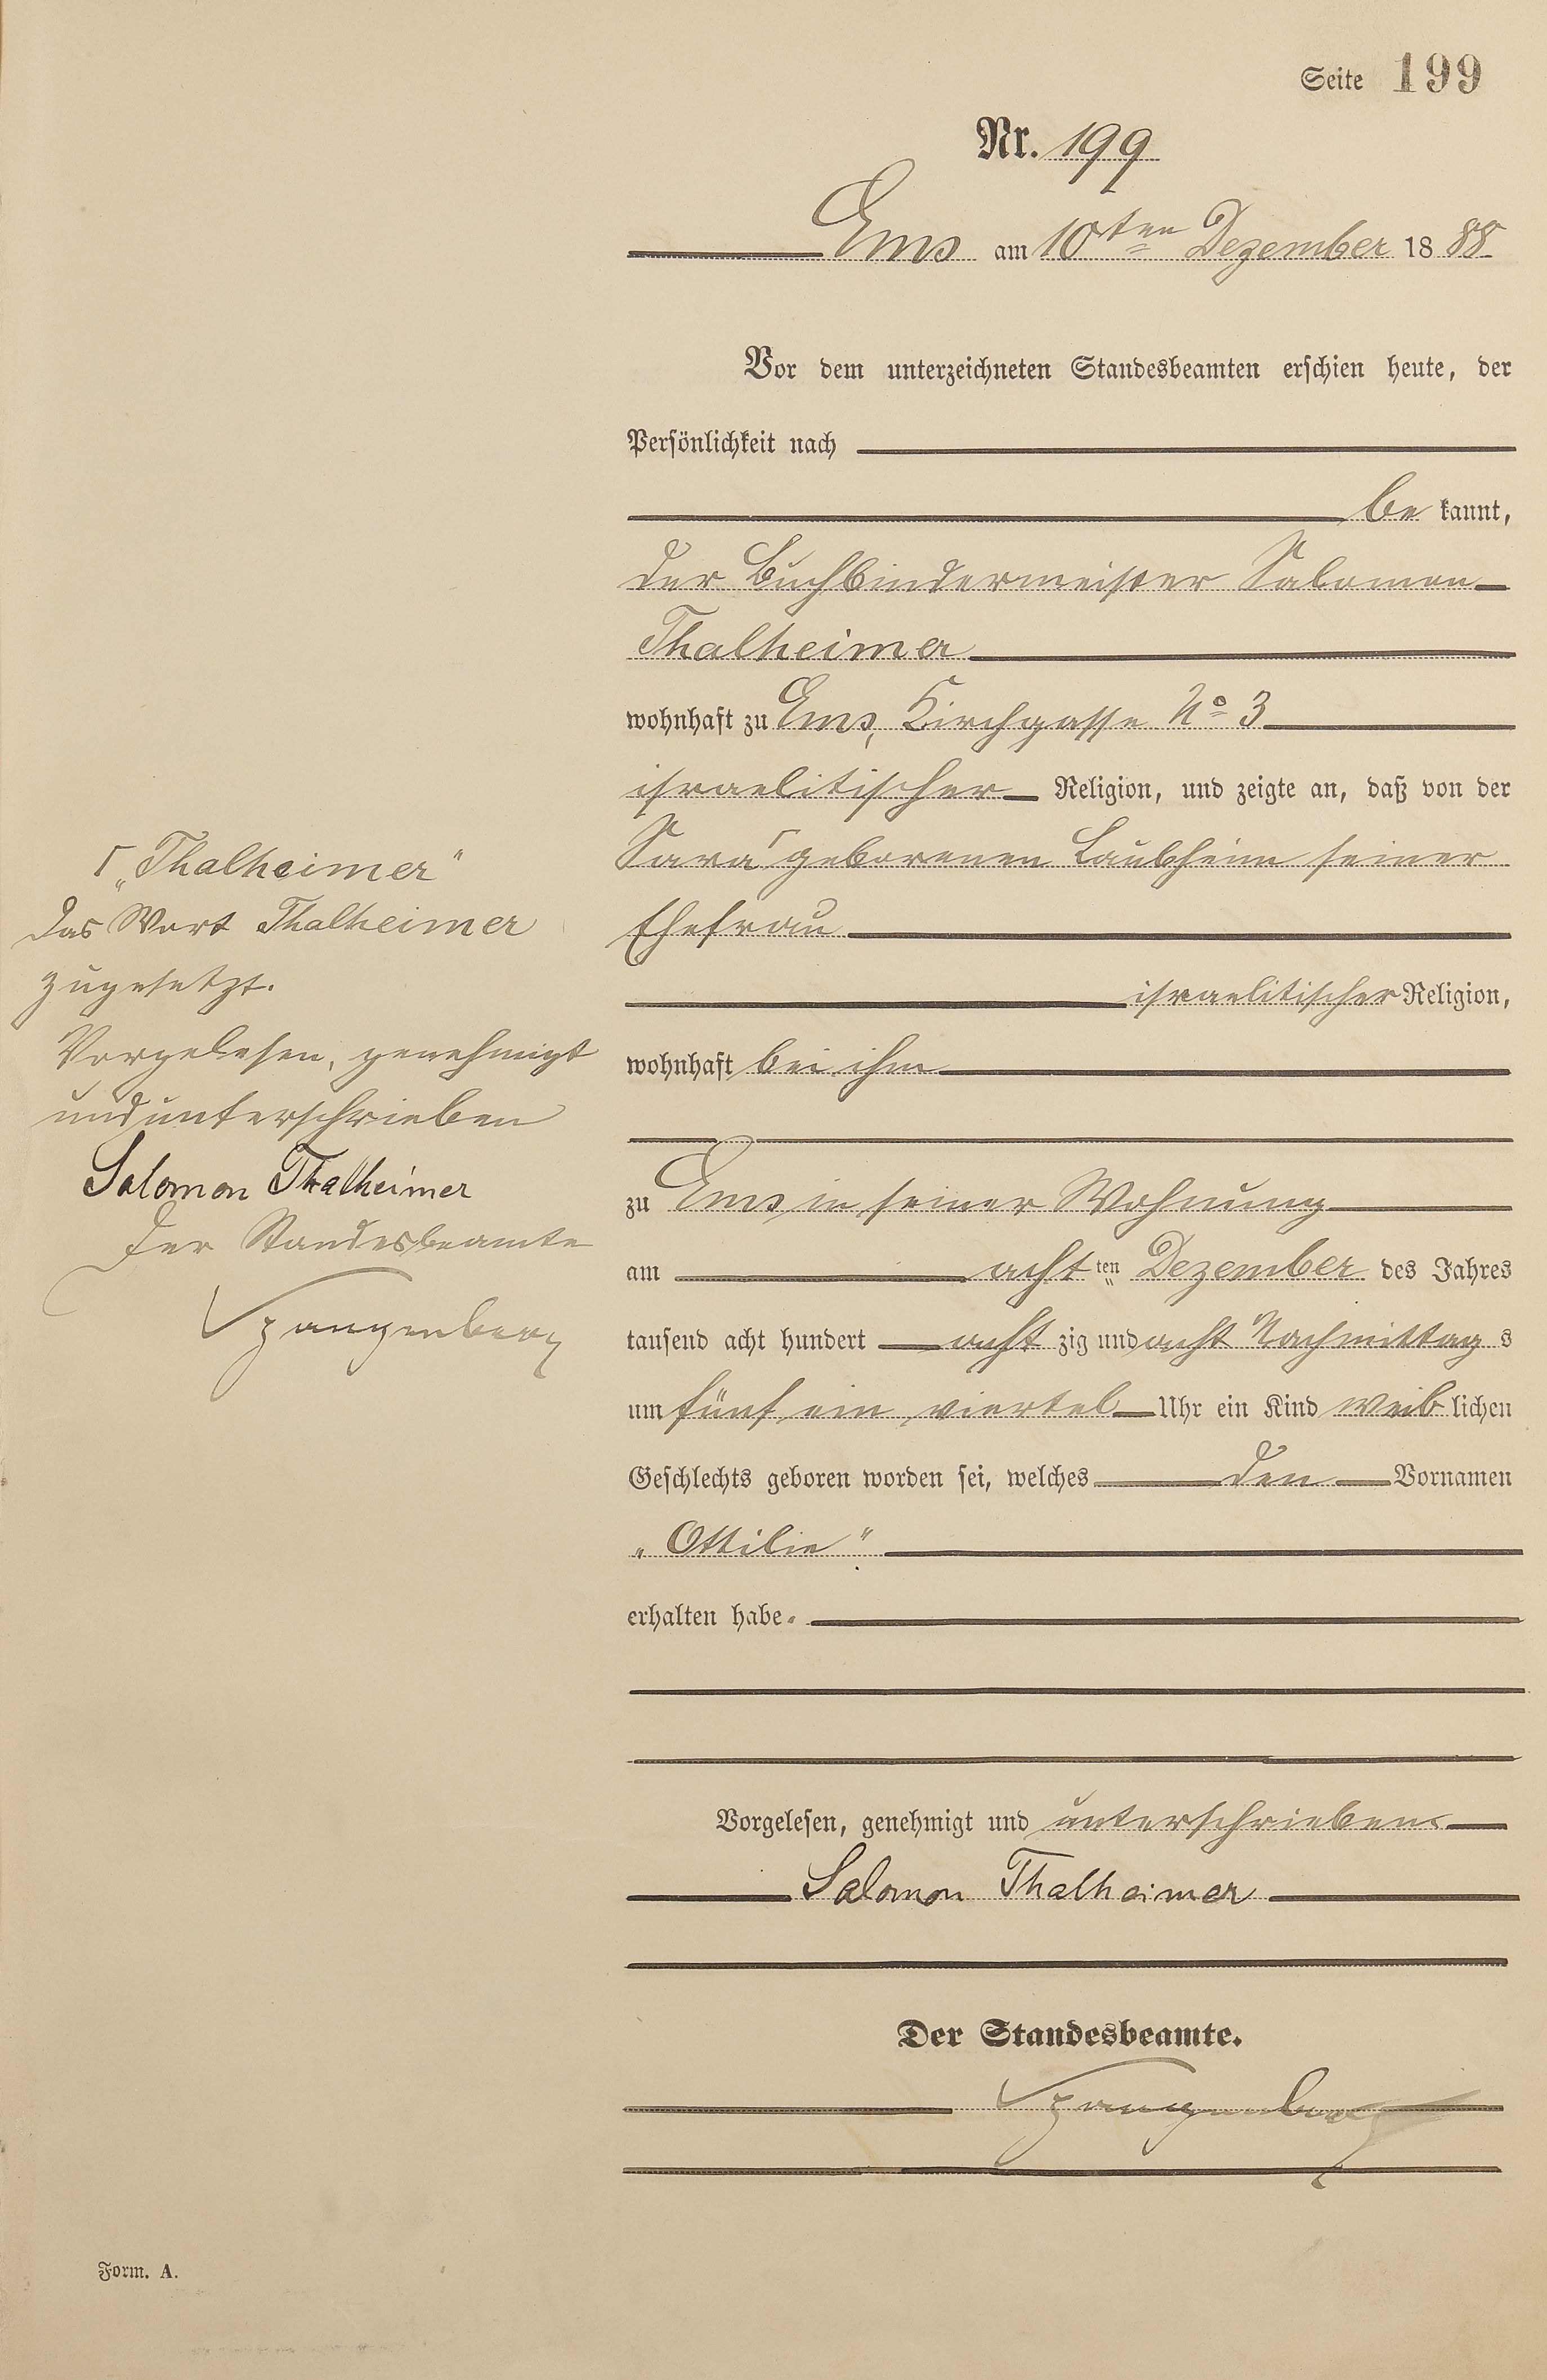 Seite 199
Nr. 199
Ems am 10ten Dezember 1888
Vor dem unterzeichneten Standesbeamten erschien heute, der
Persönlichkeit nach
be kannt,
der Buchbindermeister Salomon
Thalheimer
wohnhaft zu Ems, Kirchgasse No 3
israelitischer Religion, und zeigte an, daß von der
Sara ⌈ geborenen Laubheim seiner
Ehefrau
israelitischer Religion,
wohnhaft bei ihm
zu Ems, in seiner Wohnung
am acht ten Dezember des Jahres
tausend acht hundert acht zig und acht Nachmittag s
um fünf ein viertel Uhr ein Kind weib lichen
Geschlechts geboren worden sei, welches den Vornamen
„Ottilie"
erhalten habe.
Vorgelesen, genehmigt und unterschrieben.
Salomon Thalheimer
Der Standesbeamte.
Spangenberg
⌈ „Thalheimer"
Das Wort Thalheimer
zugesetzt.
Vorgelesen, genehmigt
und unterschrieben
Salomon Thalheimer
Der Standesbeamte
Spangenberg
Form. A.